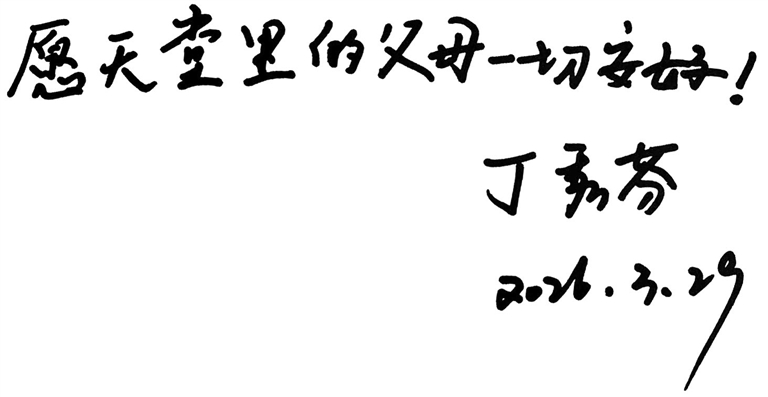 愿天堂里的父母一切安好!
丁秀芬
2026.3.29